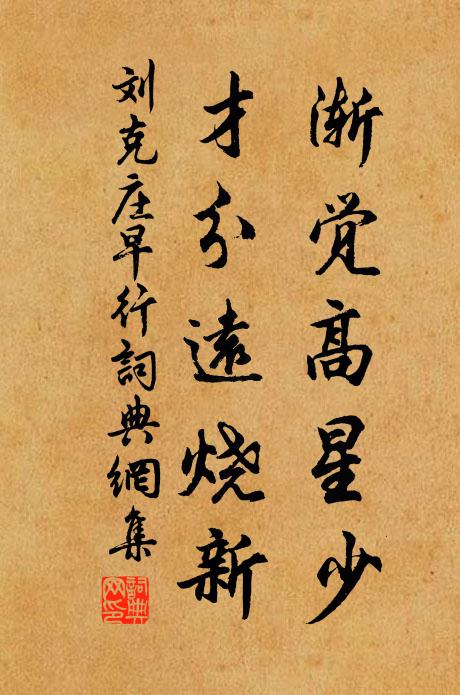 渐觉高星少
才分遠烧新
刘克庄早行詞典網集
詞典網印